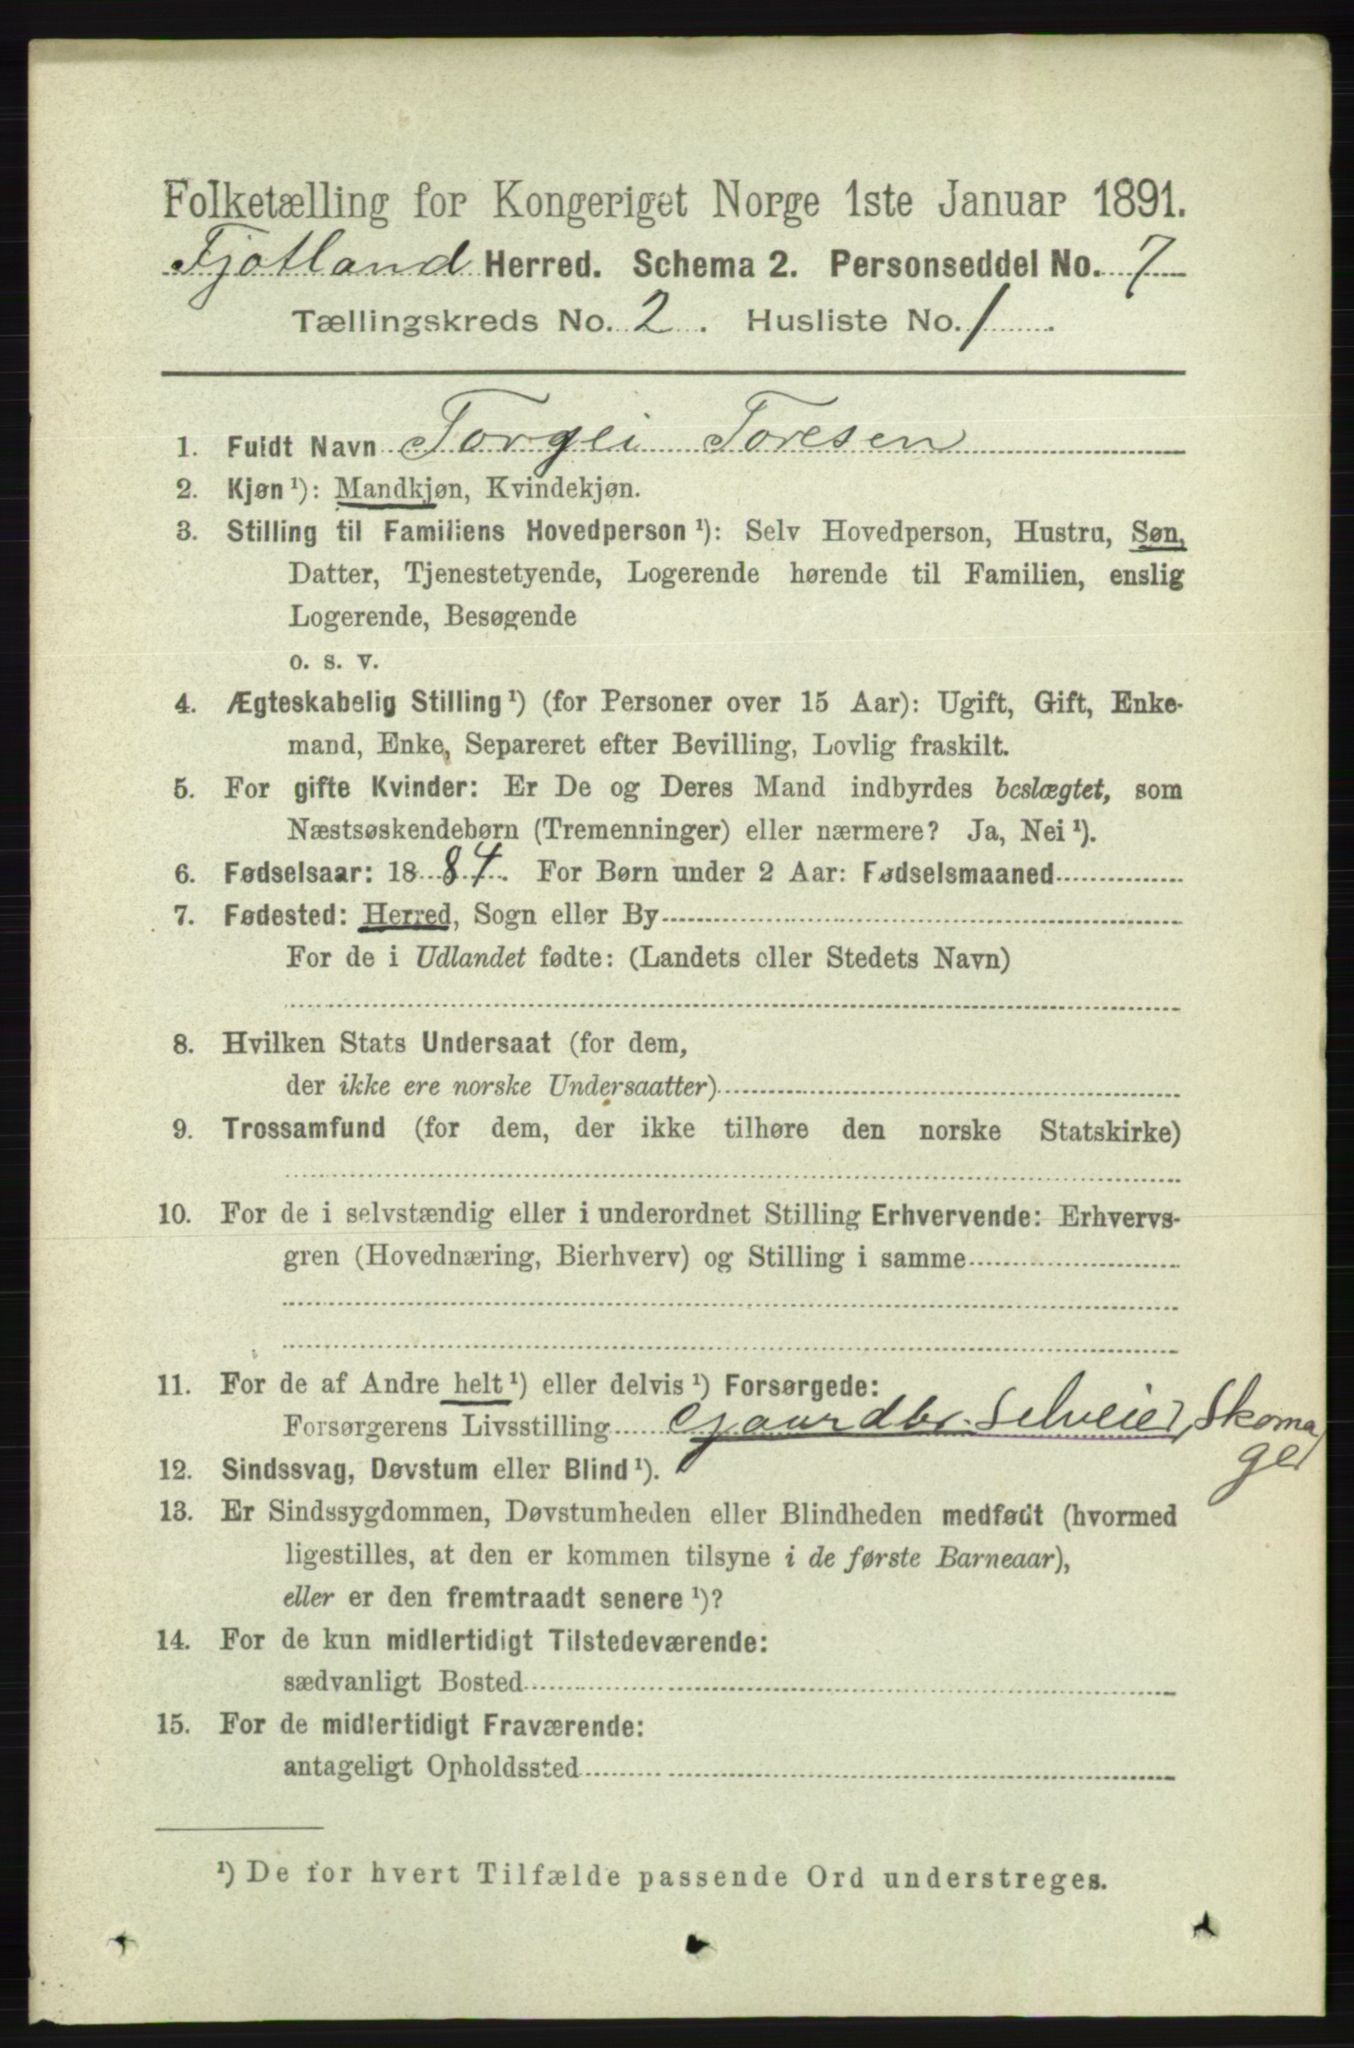 Folketælling for Kongeriget Norge 1ste Januar 1891.
Fjotland Herred. Schema 2. Personseddel No. 7
Tællingskreds No. 2. Husliste No. 1.
1. Fuldt Navn Torgei Toresen
2. Kjøn ¹): Mandkjøn, Kvindekjøn.
3. Stilling til Familiens Hovedperson ¹): Selv Hovedperson, Hustru, Søn,
Datter, Tjenestetyende, Logerende hørende til Familien, enslig
Logerende, Besøgende
o. s. v.
4. Ægteskabelig Stilling ¹) (for Personer over 15 Aar): Ugift, Gift, Enke-
mand, Enke, Separeret efter Bevilling, Lovlig fraskilt.
5. For gifte Kvinder: Er De og Deres Mand indbyrdes beslægtet, som
Næstsøskendebørn (Tremenninger) eller nærmere? Ja, Nei ¹).
6. Fødselsaar: 1884. For Børn under 2 Aar: Fødselsmaaned
7. Fødested: Herred, Sogn eller By
For de i Udlandet fødte: (Landets eller Stedets Navn)
8. Hvilken Stats Undersaat (for dem,
der ikke ere norske Undersaatter)
9. Trossamfund (for dem, der ikke tilhøre den norske Statskirke)
10. For de i selvstændig eller i underordnet Stilling Erhvervende: Erhvervs-
gren (Hovednæring, Bierhverv) og Stilling i samme
11. For de af Andre helt ¹) eller delvis ¹) Forsørgede:
Forsørgerens Livsstilling Gaardbr. Selveier, Skoma
ger
12. Sindssvag, Døvstum eller Blind ¹).
13. Er Sindssygdommen, Døvstumheden eller Blindheden medfødt (hvormed
ligestilles, at den er kommen tilsyne i de første Barneaar),
eller er den fremtraadt senere ¹)?
14. For de kun midlertidigt Tilstedeværende:
sædvanligt Bosted
15. For de midlertidigt Fraværende:
antageligt Opholdssted
¹) De for hvert Tilfælde passende Ord understreges.